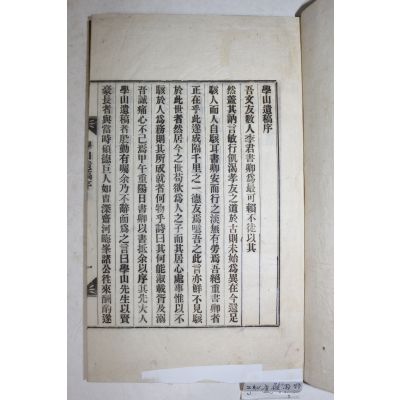 學山遺稿序
吾文友數人李君書卿爲最可穪不徒以其
然蓋其訥言敏行飢渴孝友之道於古則未始爲異在今還足
駭人而人自駭耳書卿安而行之淡無有勞爲吾絕重書卿者
正在乎此遂成隔千里之一德友焉噫吾之此言亦鮮不見駭
於此世者然居今之世苟欲爲人之子而其居心處事惟以不
駭於人爲務則其所成就者何物乎詩曰其何能淑載胥及溺
吾誠痛心不已焉甲午重陽日書卿以書抵余以序其先大人
學山遺稿者慇勤有囑余乃不辭而爲之言曰學山先生以賢
豪長者與當時碩德巨人如曺深齋河晦峯諸公徃來酬酌遂
學山遺稿序
一